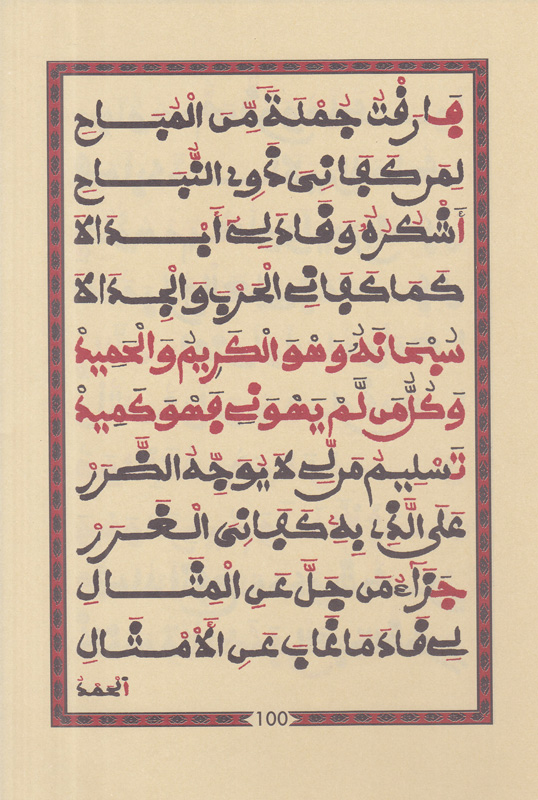 فَارَقْتُ جُمْلَةً مِّنَ الْمُبَاحِ
لِمَن كَفَانِيَ ذَوِي النُّبَاحِ
أَشْكُرُهُ وَقَادَ لِي أَبْدَالَا
كَمَا كَفَانِي الْحَرْبَ وَالْجِدَالَا
سُبْحَانَهُ وَهْوَ الْكَرِيمُ وَالْحَمِيدْ
وَكُلُّ مَن لَّمْ يَهْوَنِي فَهْوَ كَمِيدْ
تَسْلِيمُ مَن لِّي لَا يُوَجِّهُ الضَّرَرْ
عَلَى الَّذِي بِهِ كَفَانِيَ الْغَرَرْ
جَزَاءُ مَن جَلَّ عَنِ الْمِثَالِ
لِي قَادَ مَا غَابَ عَنِ الْأَمْثَالِ
الْحَمْدُ
100